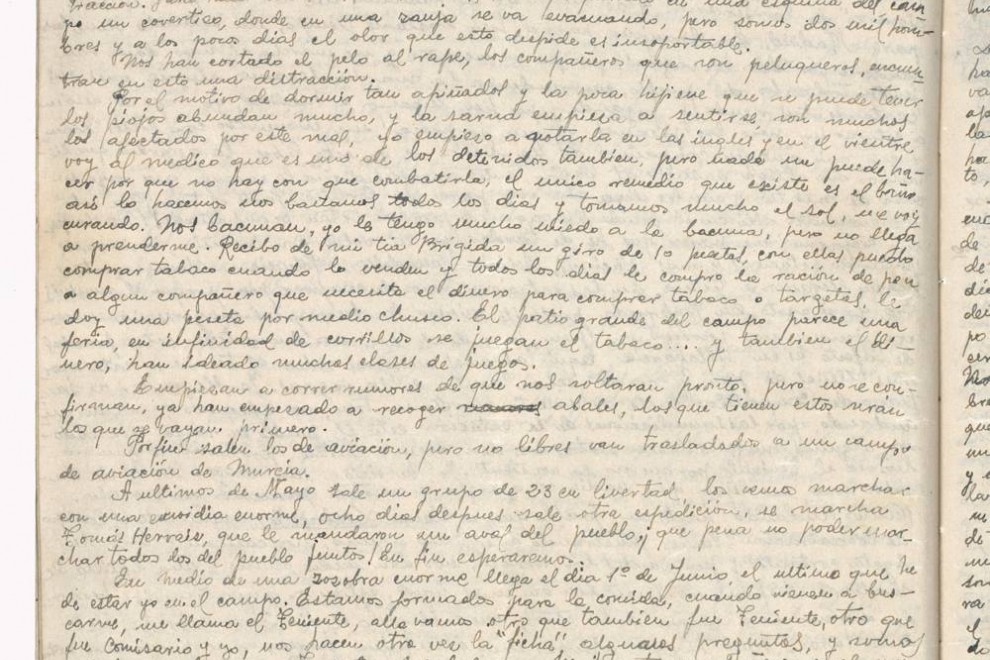 en una esquina del cam
po un covertizo, donde en una zanja se va evacuando, pero somos dos mil hom-
bres y a los pocos dias el olor que esto despide es insoportable.
Nos han cortado el pelo al rape, los compañeros que son peluqueros, encuen-
tran en esto una distracción.
Por el motivo de dormir tan apiñados y la poca hifiene que se puede tener
los piojos abundan mucho, y la sarna empieza a sentirse, son muchos
los afectados por este mal, yo empiezo a notarla en las ingles y en el vientre
voy al medico que es uno de los detenidos tambien, pero nada me puede ha-
cer por que no hay con que combatirla, el unico remedio que existe es el baño
asi lo hacemos nos bañamos todos los dias y tomamos mucho el sol, me voy
curando. Nos bacunan, yo le tengo mucho miedo a la bacuna, pero no llega
a prenderme. Recibo de mi tia Brigida un giro de 10 pesetas, con ellas puedo
comprar tabaco cuando lo venden y todos los dias le compro la ración de pan
a algun compañero que necesita el dinero para comprar tabaco o targetas, le
doy una peseta por medio chusco. El patio grande del campo parece una
feria, en infinidad de corrillos se juegan el tabaco.... y tambien el di-
nero, han ideado muchas clases de juegos.
Empiezan a correr rumores de que nos soltaran pronto, pero no se con-
firman, ya han empezado a recoger abales, los que tienen estos serán
los que se vayan primero.
Por fin salen los de aviación, pero no libres van trasladados a un campo
de aviación de Murcia.
A ultimos de Mayo sale un grupo de 23 en livertad, los vemos marchar
con una envidia enorme, ocho dias despues sale otra espedición, se marcha
Tomás Herraiz, que le mandaron un aval del pueblo, ¡que pena no poder mar-
char todos los del pueblo juntos! En fin esperaremos.
En medio de una zozobra enorme, llega el dia 1º de Junio, el ultimo que he
de estar yo en el campo. Estamos formados para la comida, cuando vienen a bus-
carme, me llama el Teniente, alla vamos otro que tambien fue Teniente, otro que
fue Comisario y yo, nos hacen otra vez la "ficha", algunas preguntas, y somos